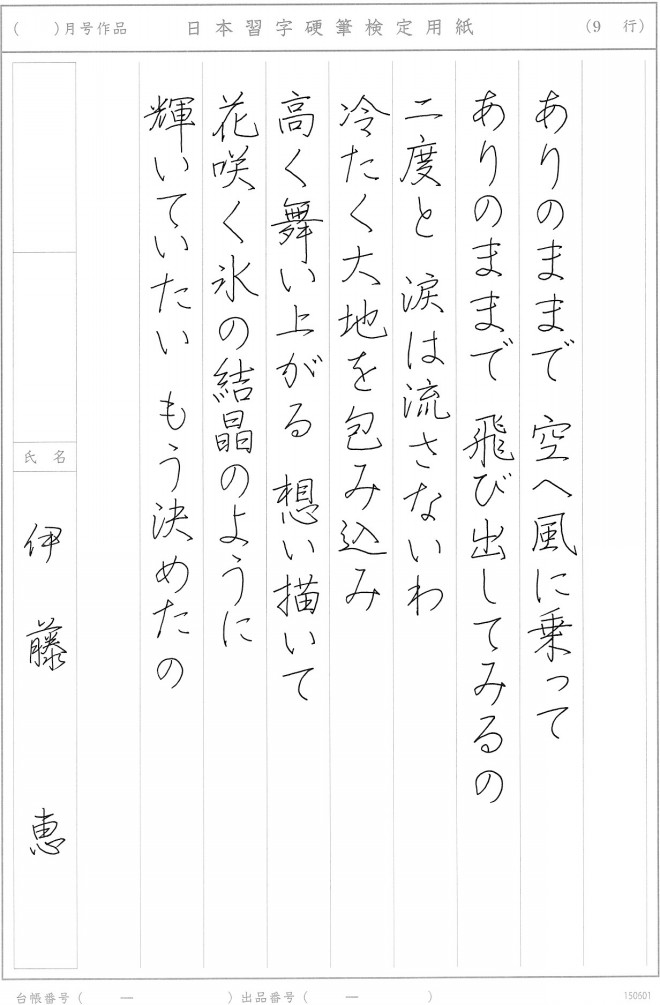 (　　)月号作品　日本習字硬筆検定用紙　(9　行)
ありのままで　空へ風に乗って
ありのままで　飛び出してみるの
二度と　涙は流さないわ
冷たく大地を包み込み
高く舞い上がる　想い描いて
花咲く氷の結晶のように
輝いていたい　もう決めたの
氏名
伊藤　恵
台帳番号(　　―　　　　)出品番号(　　―　　　　)
150601